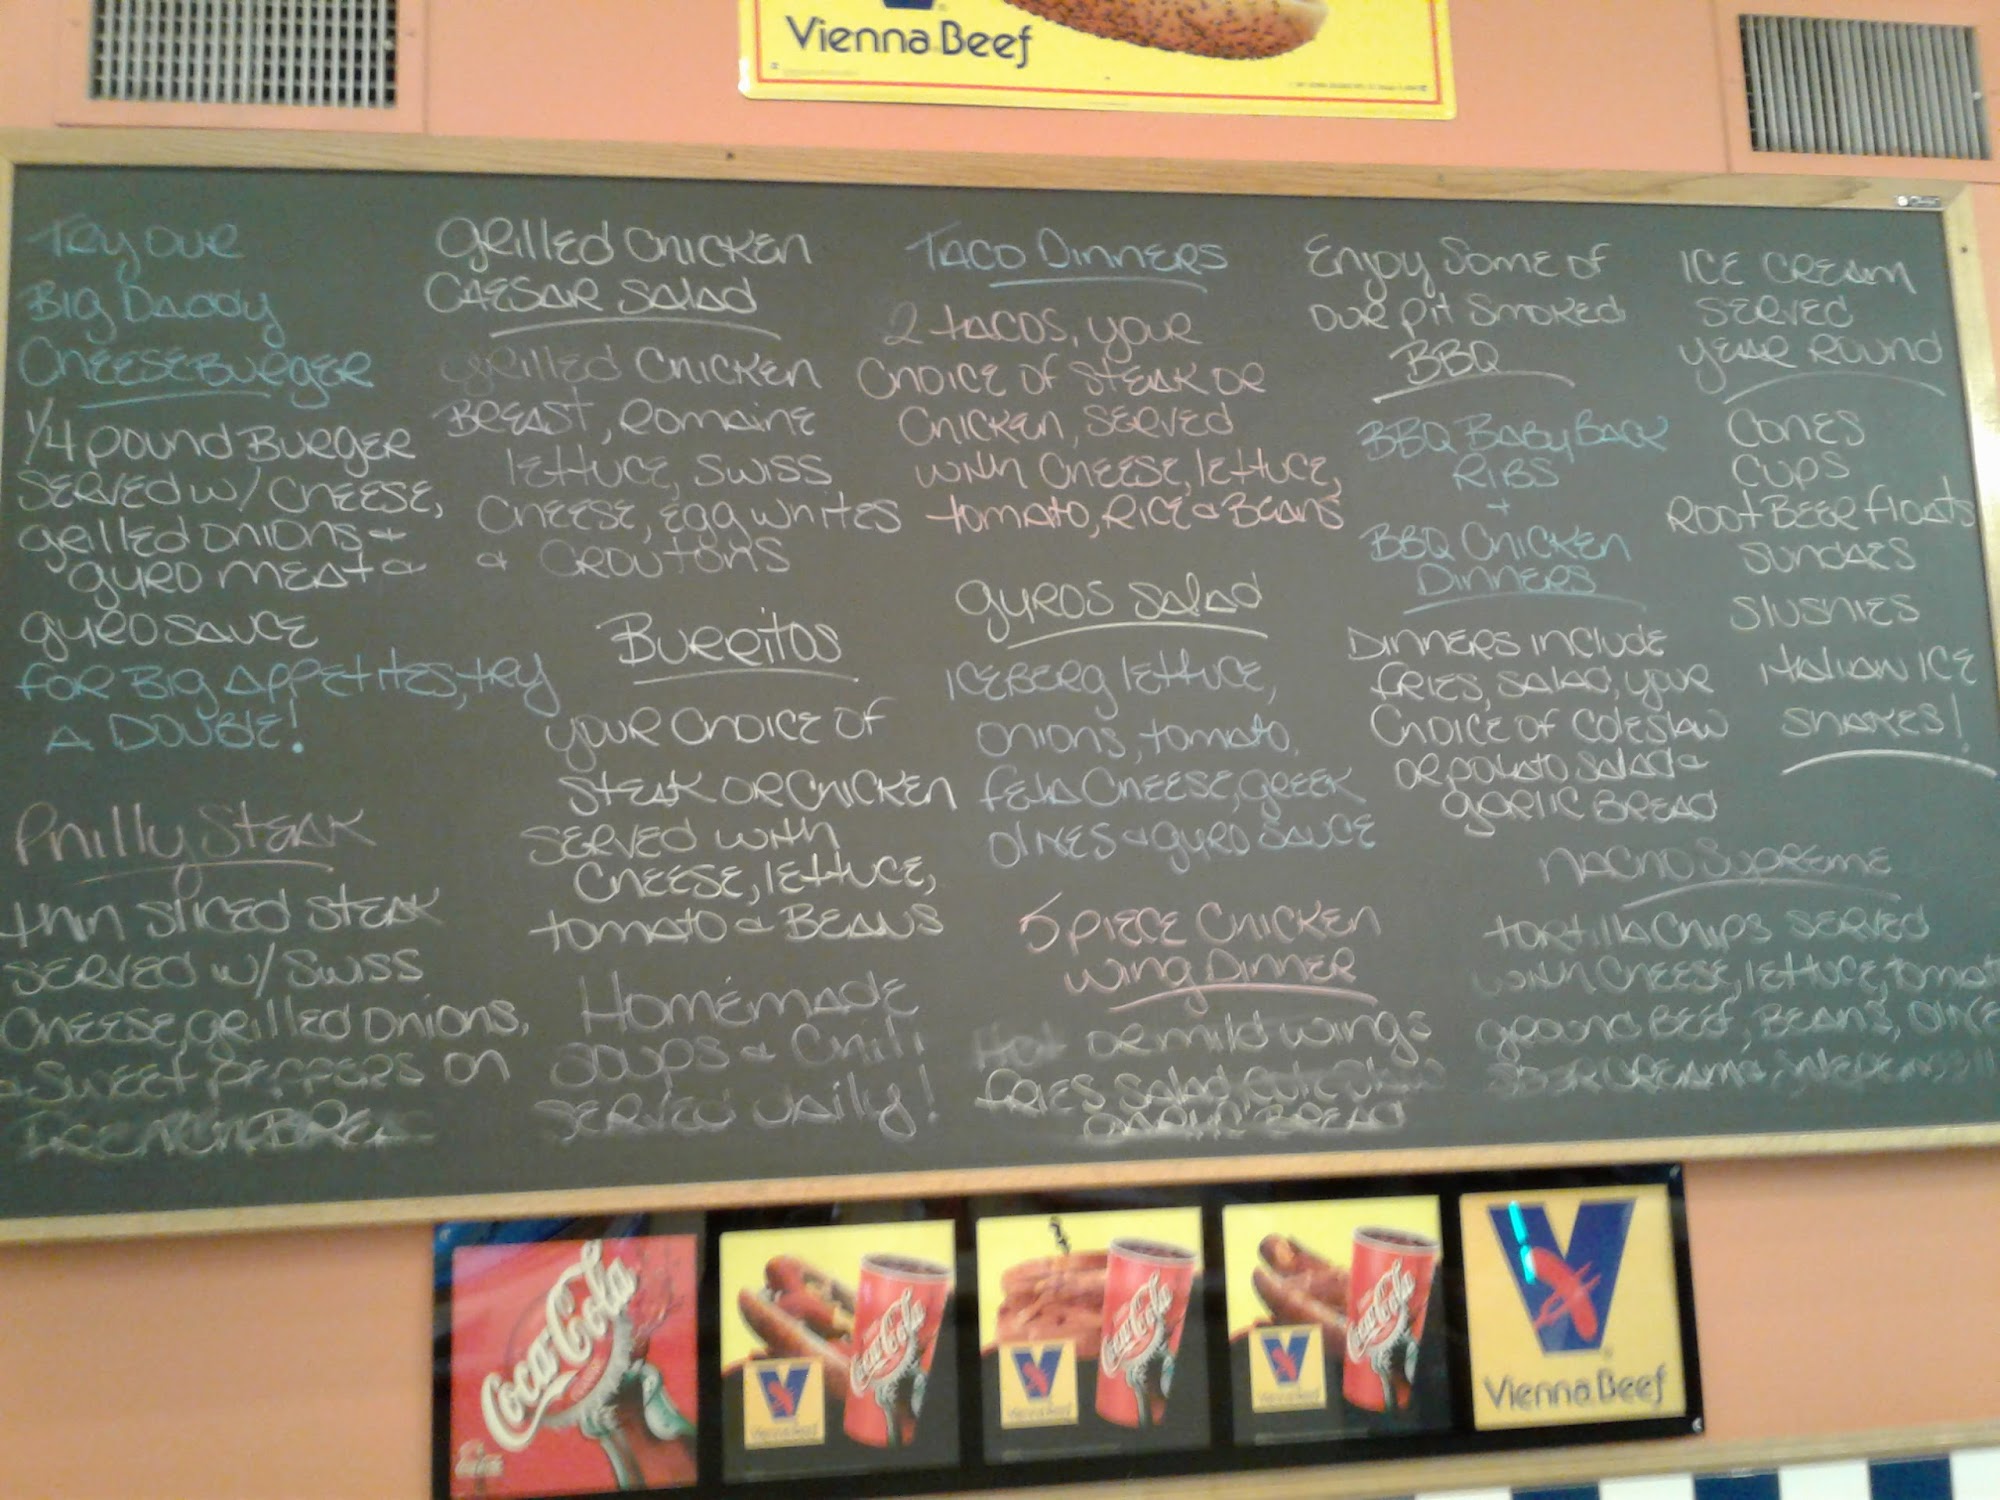 Vienna Beef
Try our
Big Daddy
Cheeseburger
1/4 pound Burger
served w/ cheese,
grilled onions &
gyro meat &
gyro sauce
for Big Appetites, try
a Double!
Philly Steak
thin sliced steak
served w/ Swiss
Cheese, grilled onions,
& sweet peppers on
Grilled Chicken
Caesar Salad
grilled Chicken
Breast, romaine
lettuce, swiss
cheese, egg whites
& croutons
Burritos
your choice of
steak or chicken
served with
cheese, lettuce,
tomato & Beans
Homemade
soups & Chili
served daily!
Taco Dinners
2 tacos, your
choice of steak or
chicken, served
with cheese, lettuce,
tomato, rice & Beans
Gyros Salad
iceberg lettuce,
onions, tomato,
feta cheese, greek
olives & gyro sauce
5 piece Chicken
Wing Dinner
Hot or mild wings
fries salad
garlic bread
Enjoy Some of
our pit smoked
BBQ
BBQ Baby Back
Ribs
+
BBQ Chicken
Dinners
Dinners include
fries, salad, your
choice of coleslaw
or potato salad &
garlic bread
Nacho Supreme
tortilla chips served
with cheese, lettuce, tomat
ground beef, beans, olive
sour cream &
Ice cream
served
year round
Cones
Cups
Root Beer floats
Sundaes
Slushies
Italian Ice
Shakes!
Coca-Cola
Vienna Beef
Coca-Cola
Vienna Beef
Coca-Cola
Vienna Beef
Coca-Cola
Vienna Beef